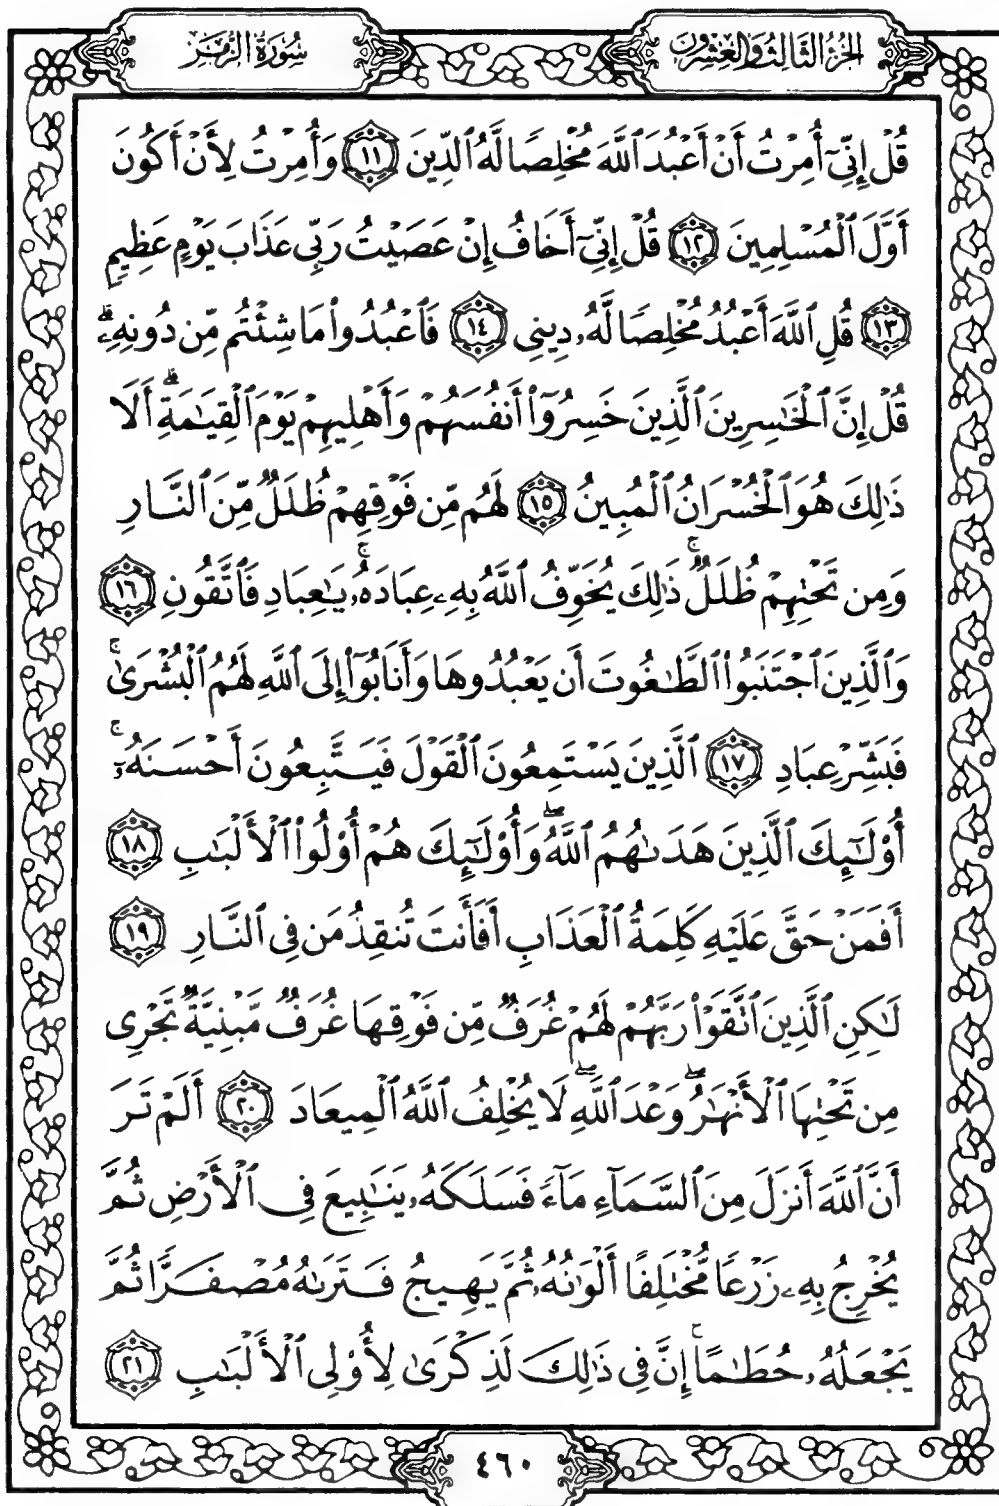 الجزء الثالث والعشرون
سورة الزمر
قُلْ إِنِّيٓ أُمِرْتُ أَنْ أَعْبُدَ ٱللَّهَ مُخْلِصًا لَّهُ ٱلدِّينَ ١١ وَأُمِرْتُ لِأَنْ أَكُونَ
أَوَّلَ ٱلْمُسْلِمِينَ ١٢ قُلْ إِنِّيٓ أَخَافُ إِنْ عَصَيْتُ رَبِّى عَذَابَ يَوْمٍ عَظِيمٍ
١٣ قُلِ ٱللَّهَ أَعْبُدُ مُخْلِصًا لَّهُۥ دِينِى ١٤ فَٱعْبُدُوا۟ مَا شِئْتُم مِّن دُونِهِۦ ۗ
قُلْ إِنَّ ٱلْخَٰسِرِينَ ٱلَّذِينَ خَسِرُوٓا۟ أَنفُسَهُمْ وَأَهْلِيهِمْ يَوْمَ ٱلْقِيَٰمَةِ ۗ أَلَا
ذَٰلِكَ هُوَ ٱلْخُسْرَانُ ٱلْمُبِينُ ١٥ لَهُم مِّن فَوْقِهِمْ ظُلَلٌ مِّنَ ٱلنَّارِ
وَمِن تَحْتِهِمْ ظُلَلٌ ۚ ذَٰلِكَ يُخَوِّفُ ٱللَّهُ بِهِۦ عِبَادَهُۥ ۚ يَٰعِبَادِ فَٱتَّقُونِ ١٦
وَٱلَّذِينَ ٱجْتَنَبُوا۟ ٱلطَّٰغُوتَ أَن يَعْبُدُوهَا وَأَنَابُوٓا۟ إِلَى ٱللَّهِ لَهُمُ ٱلْبُشْرَىٰ ۚ
فَبَشِّرْ عِبَادِ ١٧ ٱلَّذِينَ يَسْتَمِعُونَ ٱلْقَوْلَ فَيَتَّبِعُونَ أَحْسَنَهُۥٓ ۚ
أُو۟لَٰٓئِكَ ٱلَّذِينَ هَدَىٰهُمُ ٱللَّهُ ۖ وَأُو۟لَٰٓئِكَ هُمْ أُو۟لُوا۟ ٱلْأَلْبَٰبِ ١٨
أَفَمَنْ حَقَّ عَلَيْهِ كَلِمَةُ ٱلْعَذَابِ أَفَأَنتَ تُنقِذُ مَن فِى ٱلنَّارِ ١٩
لَٰكِنِ ٱلَّذِينَ ٱتَّقَوْا۟ رَبَّهُمْ لَهُمْ غُرَفٌ مِّن فَوْقِهَا غُرَفٌ مَّبْنِيَّةٌ تَجْرِى
مِن تَحْتِهَا ٱلْأَنْهَٰرُ ۖ وَعْدَ ٱللَّهِ ۖ لَا يُخْلِفُ ٱللَّهُ ٱلْمِيعَادَ ٢٠ أَلَمْ تَرَ
أَنَّ ٱللَّهَ أَنزَلَ مِنَ ٱلسَّمَآءِ مَآءً فَسَلَكَهُۥ يَنَٰبِيعَ فِى ٱلْأَرْضِ ثُمَّ
يُخْرِجُ بِهِۦ زَرْعًا مُّخْتَلِفًا أَلْوَٰنُهُۥ ثُمَّ يَهِيجُ فَتَرَىٰهُ مُصْفَرًّا ثُمَّ
يَجْعَلُهُۥ حُطَٰمًا ۚ إِنَّ فِى ذَٰلِكَ لَذِكْرَىٰ لِأُو۟لِى ٱلْأَلْبَٰبِ ٢١
٤٦٠